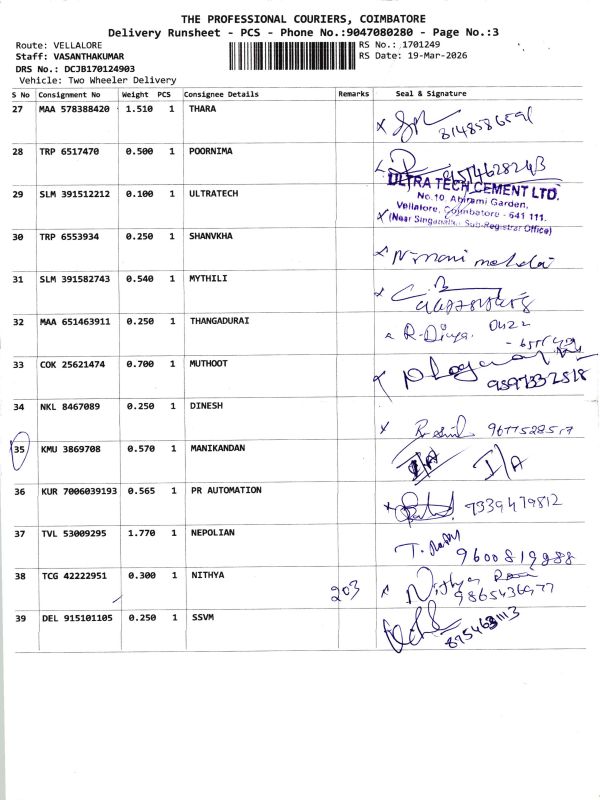 THE PROFESSIONAL COURIERS, COIMBATORE
Delivery Runsheet - PCS - Phone No.:9047080280 - Page No.:3
Route: VELLALORE
RS No.: 1701249
Staff: VASANTHAKUMAR
RS Date: 19-Mar-2026
DRS No.: DCJB170124903
Vehicle: Two Wheeler Delivery
S No Consignment No Weight PCS Consignee Details Remarks Seal & Signature
27 MAA 578388420 1.510 1 THARA
28 TRP 6517470 0.500 1 POORNIMA
29 SLM 391512212 0.100 1 ULTRATECH
ULTRA TECH CEMENT LTD.
No.10 Abirami Garden,
Vellalore, Coimbatore - 641 111.
(Near Singanallur Sub-Registrar Office)
30 TRP 6553934 0.250 1 SHANVKHA
31 SLM 391582743 0.540 1 MYTHILI
32 MAA 651463911 0.250 1 THANGADURAI
R-Divya 0422
33 COK 25621474 0.700 1 MUTHOOT
9597332518
34 NKL 8467089 0.250 1 DINESH
35 KMU 3869708 0.570 1 MANIKANDAN
I/A I/A
36 KUR 7006039193 0.565 1 PR AUTOMATION
7339479812
37 TVL 53009295 1.770 1 NEPOLIAN
38 TCG 42222951 0.300 1 NITHYA 203 Nithya
9865436977
39 DEL 915101105 0.250 1 SSVM